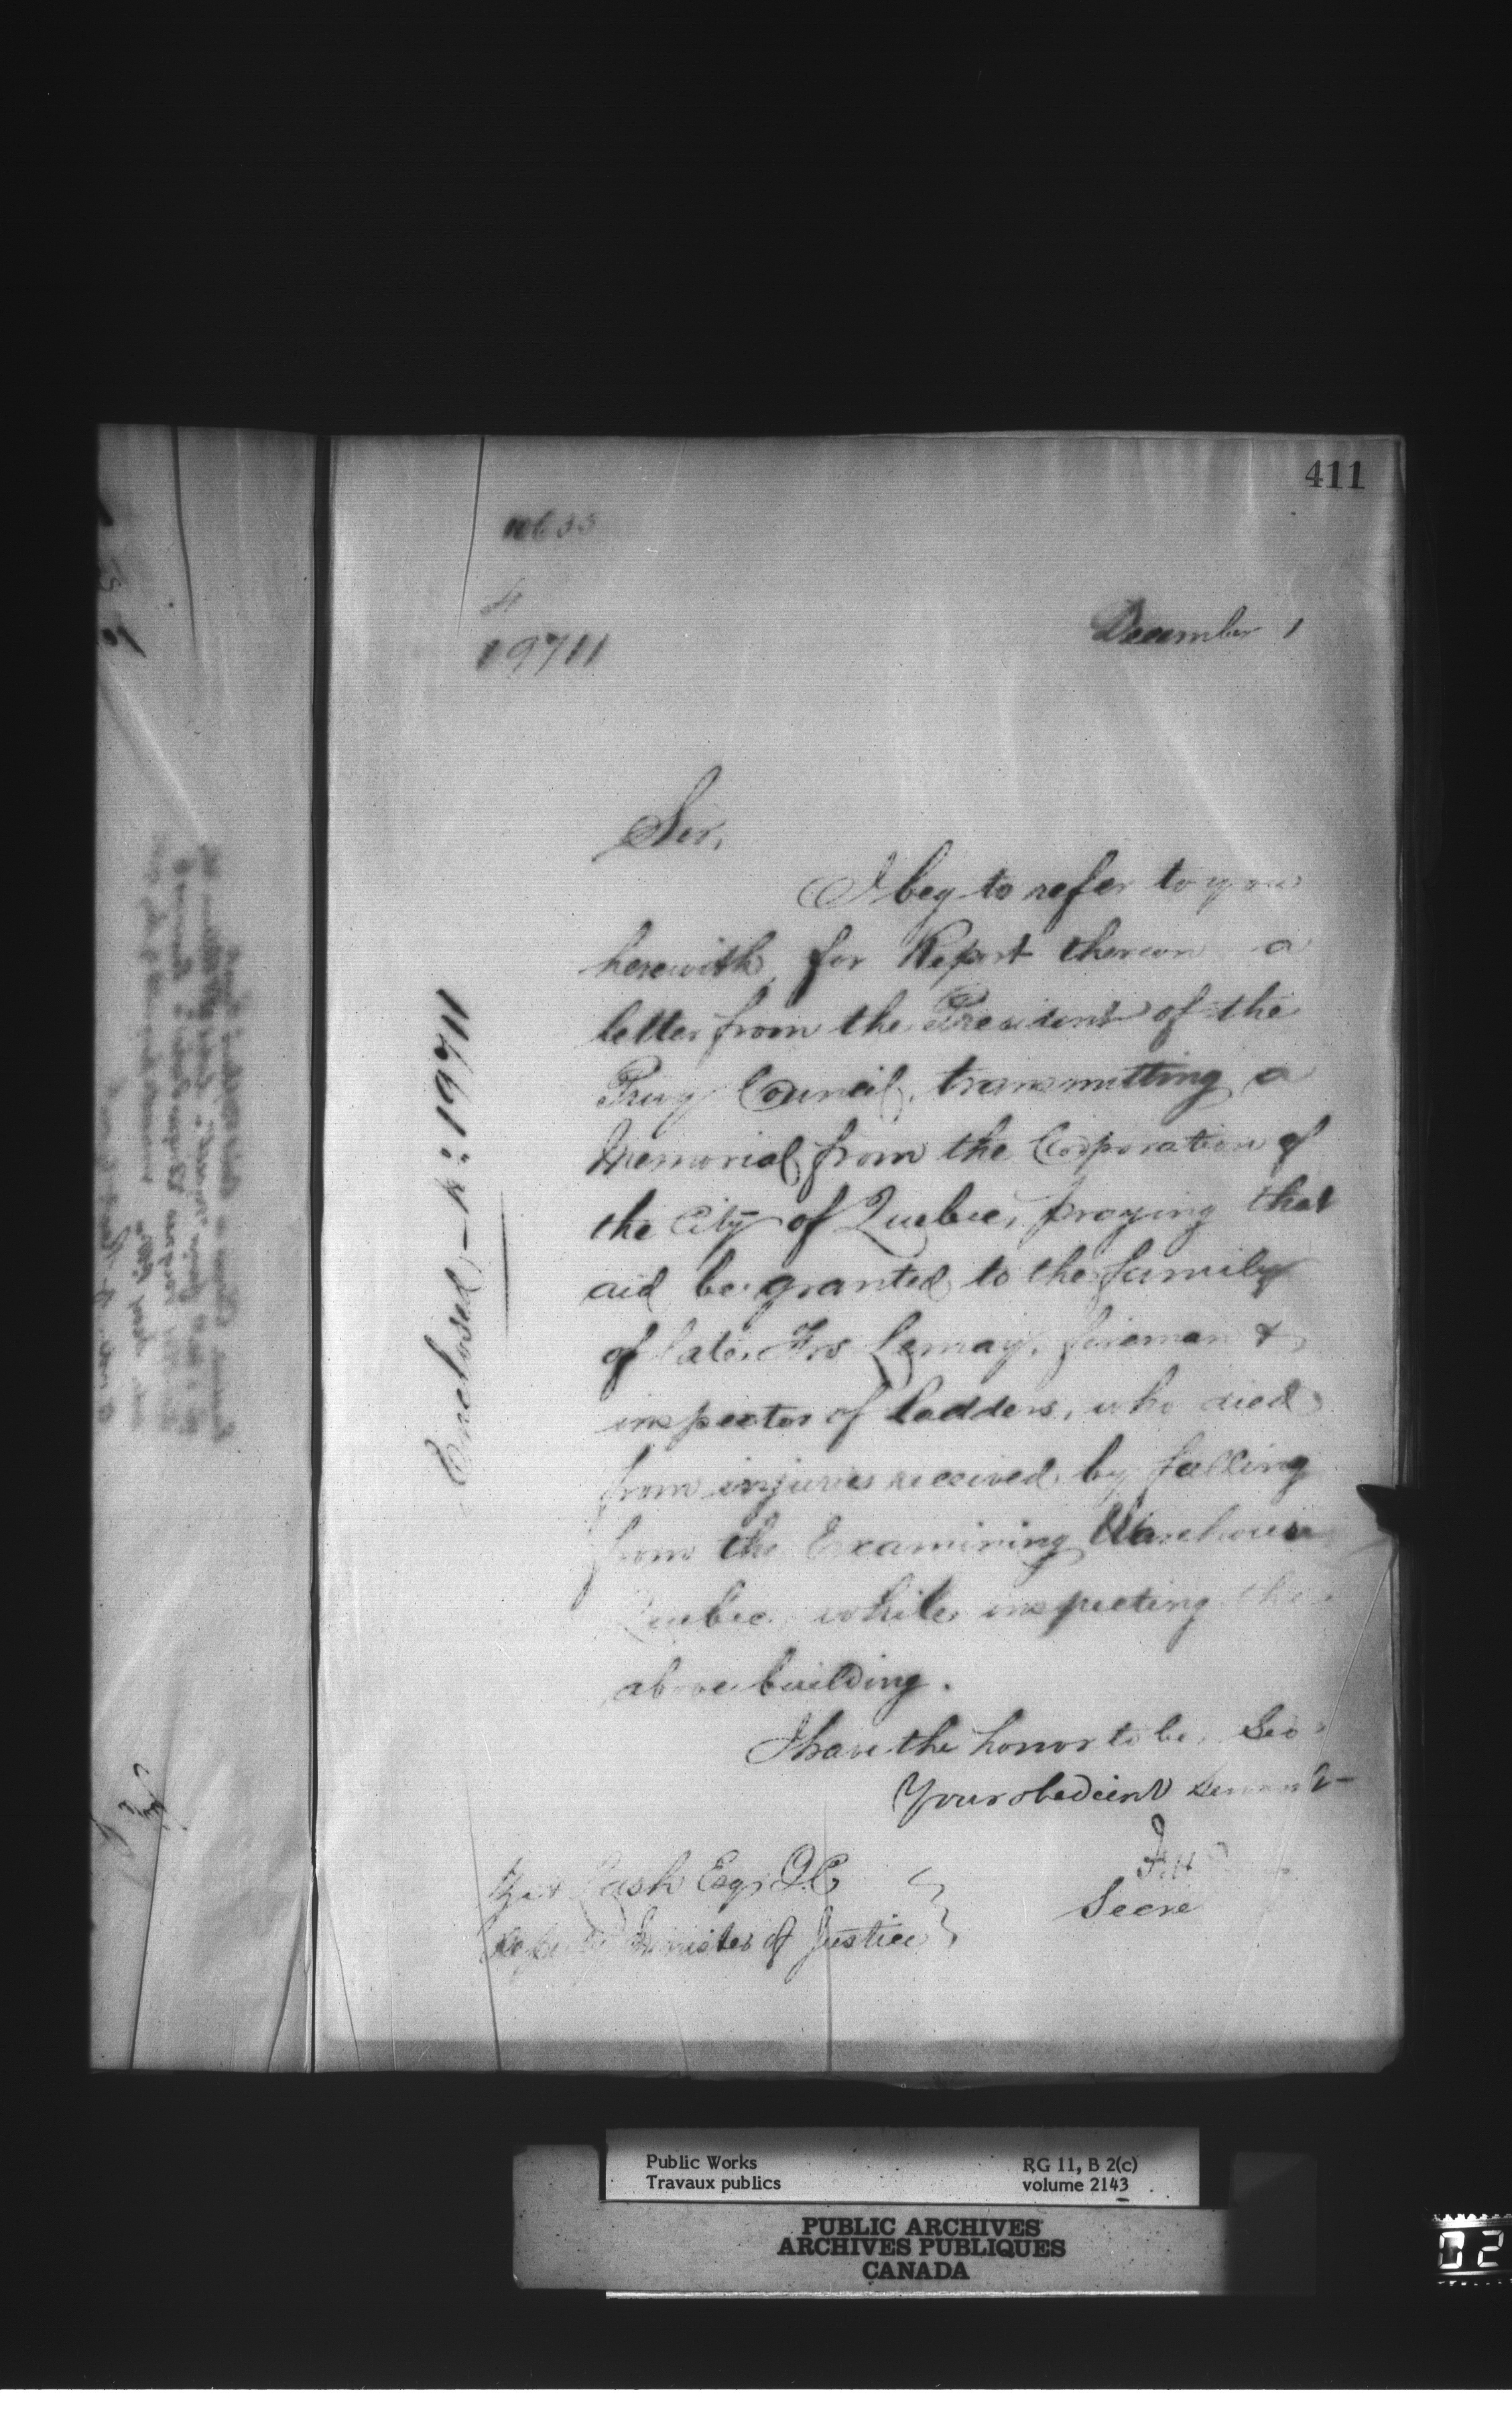 411
19711
December 1
Sir,
I beg to refer to you
herewith, for Report thereon a
letter from the President of the
Privy Council, transmitting a
Memorial from the Corporation of
the City of Quebec, praying that
aid be granted to the family
of late Frs Lemay, fireman &
inspector of ladders, who died
from injuries received by falling
from the Examining Warehouse
Quebec while inspecting the
above building.
I have the honor to be, Sir
Your obedient servant
Secre
Lash Esq, Q.C
Deputy Minister of Justice
Enclosed - No 19711
Public Works
Travaux publics
RG 11, B 2(c)
volume 2143
PUBLIC ARCHIVES
ARCHIVES PUBLIQUES
CANADA
02